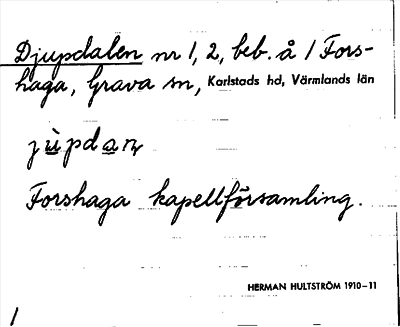 Djupdalen nr 1, 2, beb. å / Fors-
haga, Grava sn, Karlstads hd, Värmlands län
Forshaga kapellförsamling.
HERMAN HULTSTRÖM 1910-11